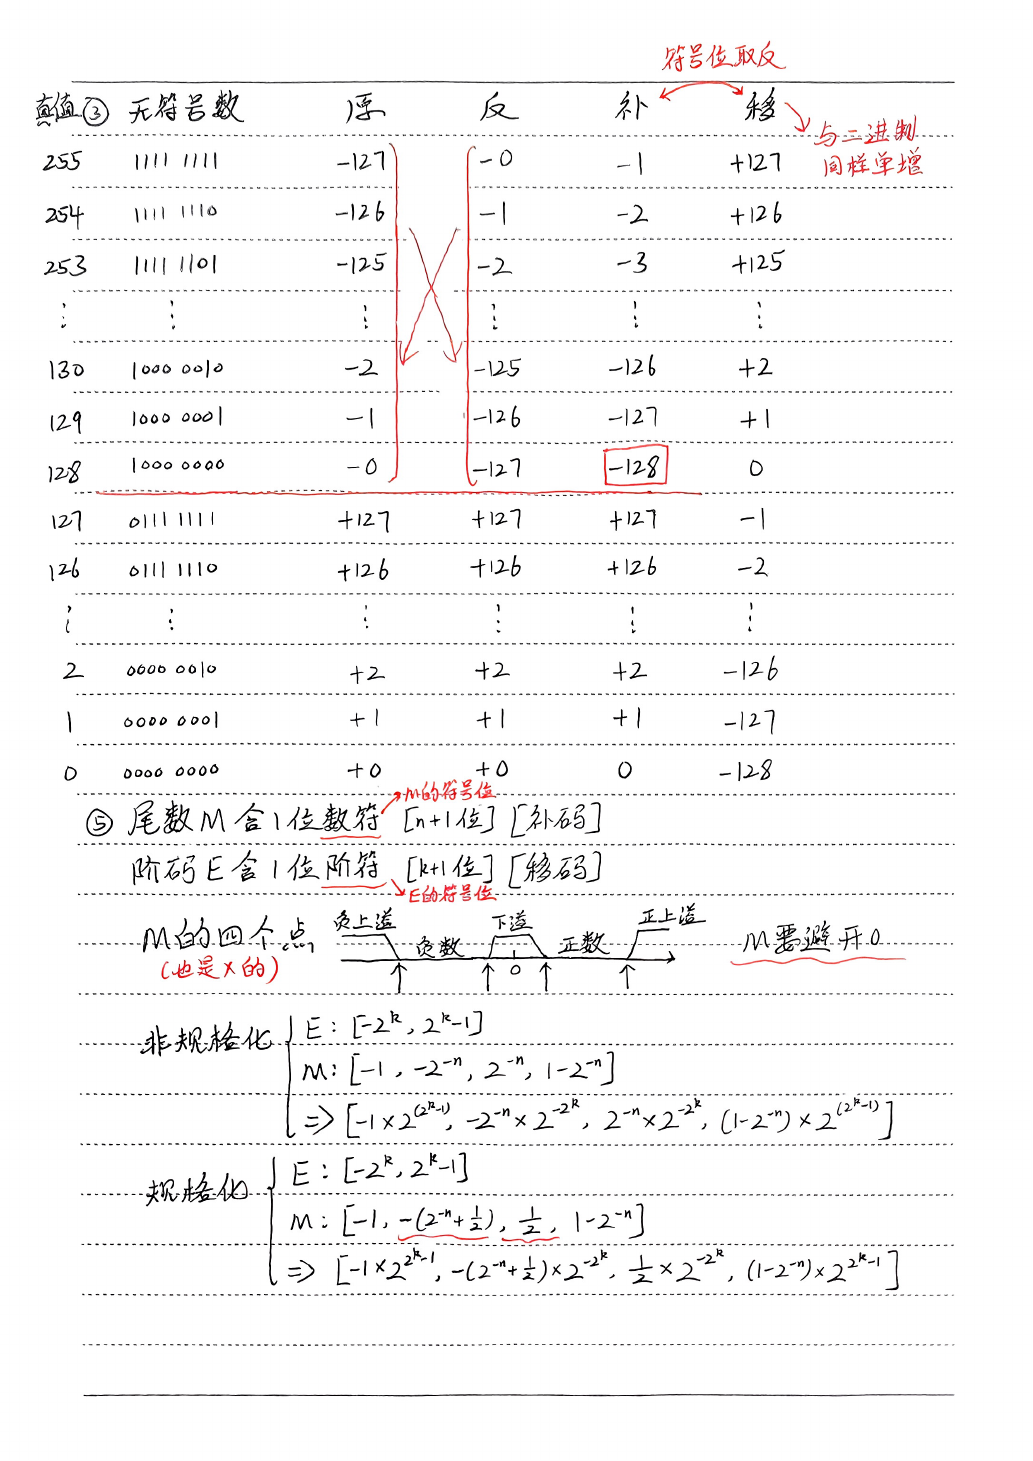 符号位取反
真值 ③ 无符号数 原 反 补 移
与二进制
同样单增
255 1111 1111 -127 -0 -1 +127
254 1111 1110 -126 -1 -2 +126
253 1111 1101 -125 -2 -3 +125
⋮ ⋮ ⋮ ⋮ ⋮ ⋮
130 1000 0010 -2 -125 -126 +2
129 1000 0001 -1 -126 -127 +1
128 1000 0000 -0 -127 -128 0
127 0111 1111 +127 +127 +127 -1
126 0111 1110 +126 +126 +126 -2
⋮ ⋮ ⋮ ⋮ ⋮ ⋮
2 0000 0010 +2 +2 +2 -126
1 0000 0001 +1 +1 +1 -127
0 0000 0000 +0 +0 0 -128
M的符号位
⑤ 尾数M含1位数符 [n+1位] [补码]
阶码E含1位阶符 [k+1位] [移码]
E的符号位
M的四个点,
(也是X的)
负上溢 负数 下溢 0 正数 正上溢
M要避开0
非规格化
E: [-2^k, 2^k-1]
M: [-1, -2^-n, 2^-n, 1-2^-n]
=> [-1×2^(2^k-1), -2^-n×2^-2^k, 2^-n×2^-2^k, (1-2^-n)×2^(2^k-1)]
规格化
E: [-2^k, 2^k-1]
M: [-1, -(2^-n+1/2), 1/2, 1-2^-n]
=> [-1×2^2^k-1, -(2^-n+1/2)×2^-2^k, 1/2×2^-2^k, (1-2^-n)×2^2^k-1]